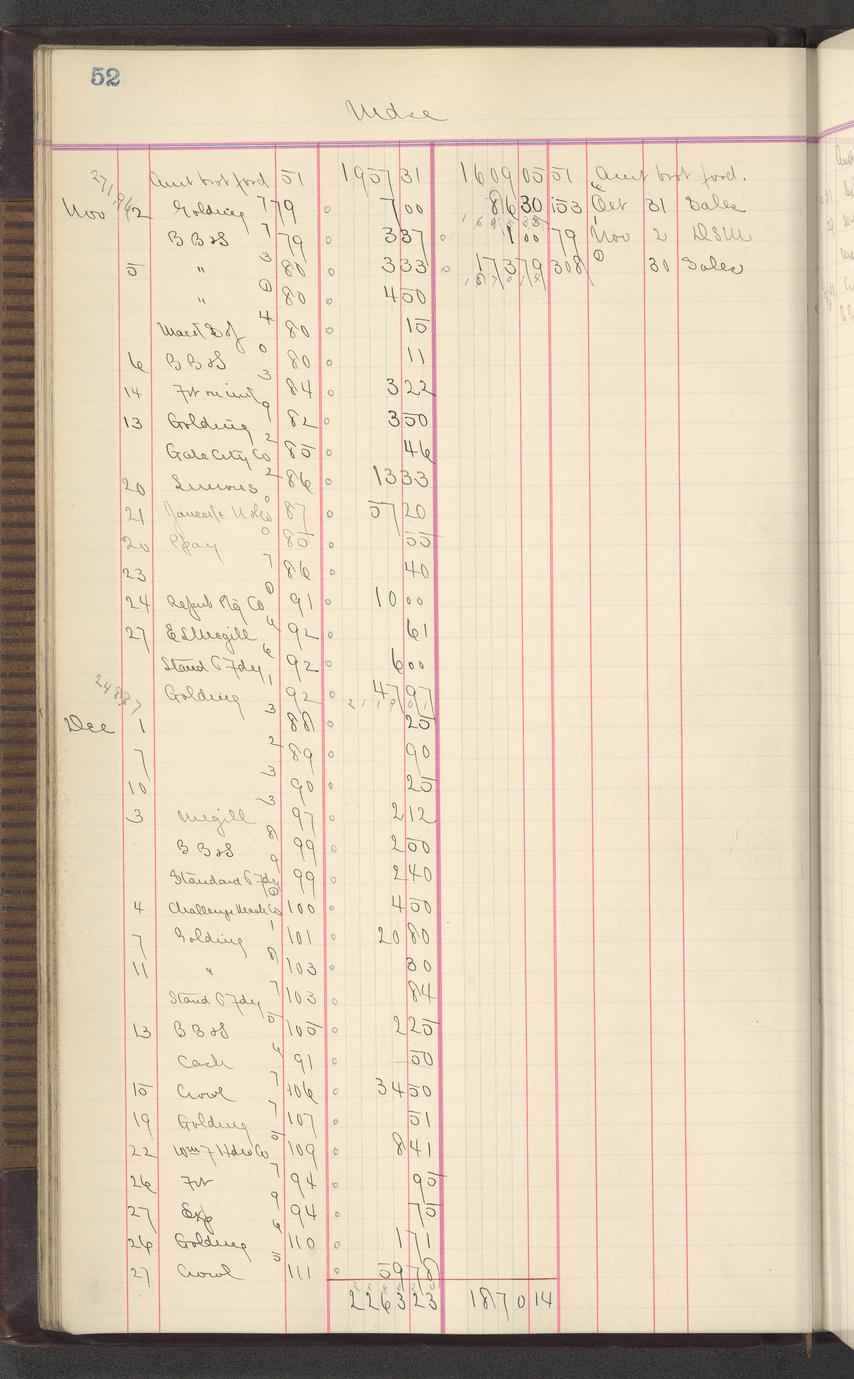 52
Mdse
Amt brot ford 51 1957 31 1609 05 51 Amt brot ford.
Nov 2 Golding 79 7 00 86 30 153 Oct 31 Sales
B B & S 79 3 37 1 00 79 Nov 2 DSM
5 " 80 3 33 173 79 308 30 Sales
" 80 4 50
80 15
6 B B & S 80 11
14 84 3 22
13 Golding 82 3 50
Gate City Co 85 46
20 Simons 86 13 33
21 87 57 20
20 85 55
23 86 40
24 Repub Co 91 10 00
27 E S Megill 92 61
Stand T Fdy 92 6 00
Golding 92 47 97
Dec 1 88 25
7 89 90
10 90 25
3 Megill 97 2 12
B B & S 99 2 50
Standard T Fdy 99 2 40
4 Challenge Mach Co 100 4 50
7 Golding 101 20 80
11 " 103 30
Stand T Fdy 103 84
13 B B & S 105 2 25
Cash 91 50
15 Crowl 106 34 50
19 Golding 107 51
22 Wm F Hdw Co 109 8 41
26 Frt 94 95
27 Exp 94 75
26 Golding 110 1 71
27 Crowl 111 59 78
2263 23 1870 14